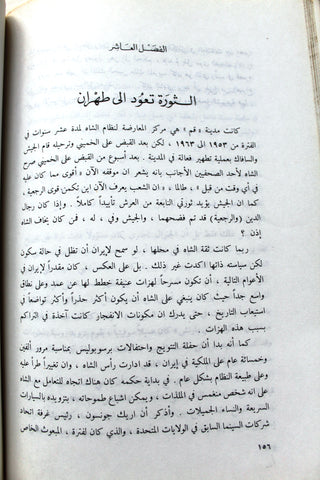 الفصل العاشر
الثورة تعود الى طهران
كانت مدينة « قم » هي مركز المعارضة لنظام الشاه لمدة عشر سنوات في
الفترة من ١٩٥٣ الى ١٩٦٣ ، لكن بعد القبض على الخميني وترحيله قام الجيش
والسافاك بعملية تطهير فعالة في المدينة . بعد أسبوع من القبض على الخميني صرح
الشاه لأحد الصحفيين الأجانب بأنه يشعر ان موقفه الآن « أقوى مما كان عليه في
أي وقت من قبل » ، طالما « ان الشعب يعرف الآن اين تكمن قوى الرجعية ،
كما ان الجيش يؤيد ثورتي النابعة من العرش تأييداً كاملاً . وإذا كان رجال
الدين (والرجعية) قد تم فضحهما ، والجيش وفي ، له ، فمن كان يخاف الشاه
إذن ؟
ربما كانت ثقة الشاه في محلها ، لو سمح لإيران أن تظل في حالة سكون
لكن سياسته ذاتها اكدت غير ذلك . بل على العكس ، كان مقدراً لإيران في
الأعوام التالية ، أن تكون مسرحاً لهزات عنيفة خطط لها عن عمد وعلى نطاق
واسع جداً حيث كان ينبغي على الشاه أن يكون أكثر حذراً وأكثر تواضعاً في
استيعاب التاريخ ، حتى يدرك ان مكونات الانفجار كانت آخذة في التراكم
بسبب هذه الهزات .
كما أنه بدا أن حفلة التتويج واحتفالات برسوبوليس بمناسبة مرور ألفين
وخمسمائة عام على الملكية في إيران ، قد ادارت رأس الشاه ، وان تغييراً طرأ عليه
وعلى طبيعة النظام بشكل عام . في بداية حكمه كان هناك اتجاه للتعامل مع الشاه
على انه شخص منغمس في الملذات ، ويمكن اشباع طموحاته ، بتزويده بالسيارات
السريعة والنساء الجميلات . وأذكر أن اريك جونسون ، رئيس غرفة اتحاد
شركات السينما السابق في الولايات المتحدة ، والذي كان لفترة ، المبعوث الخاص
١٥٦